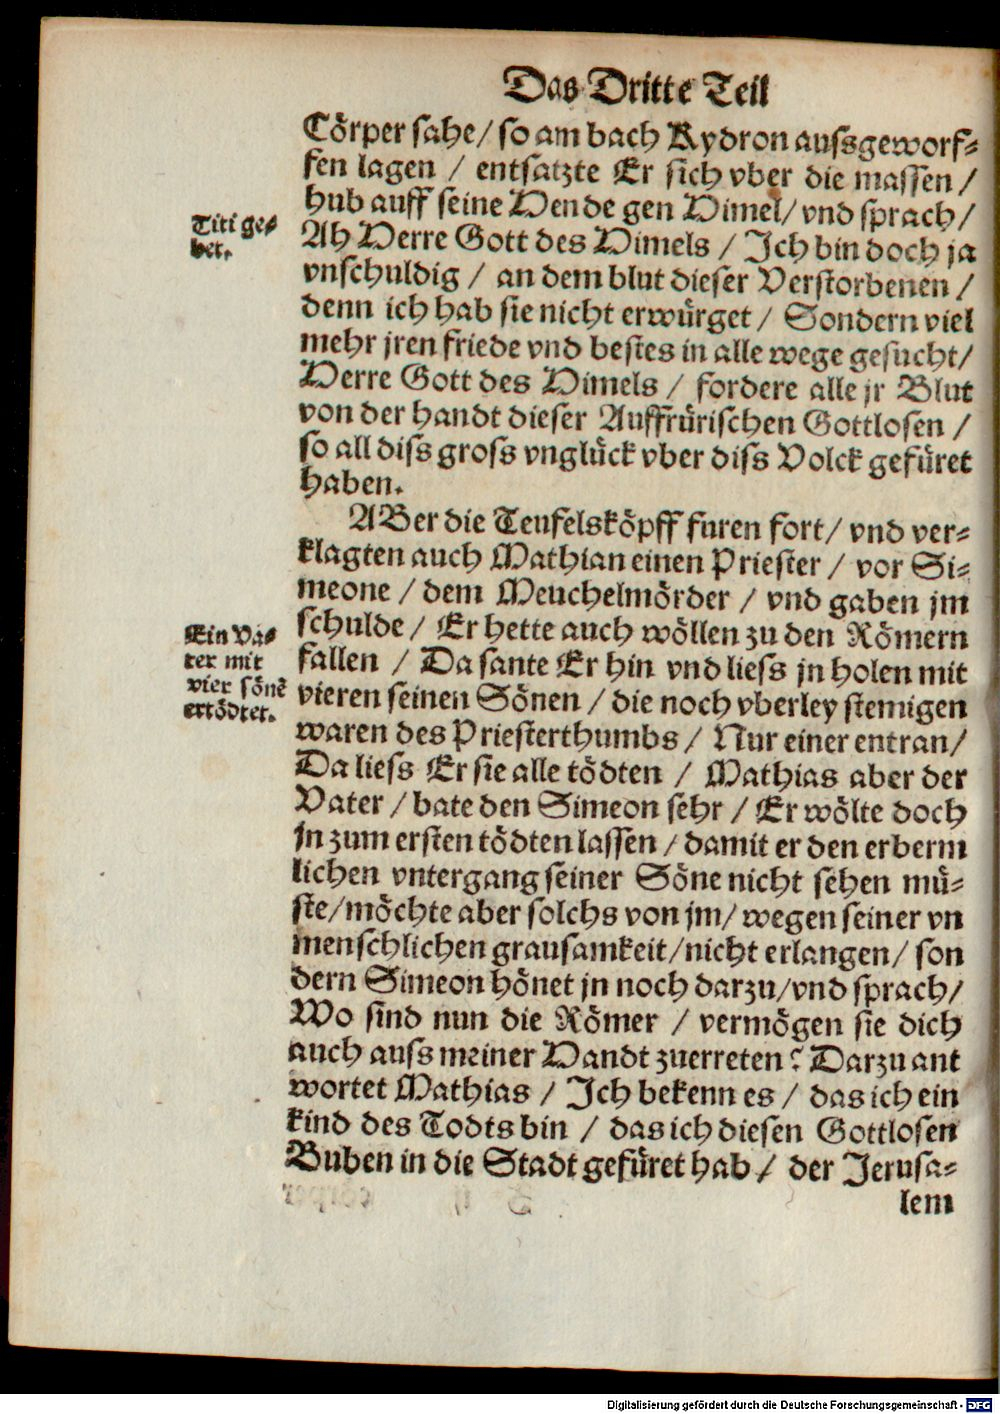 Das Dritte Teil
Cörper sahe/ so am bach Kydron aussgeworf-
fen lagen / entsatzte Er sich vber die massen /
hub auff seine Hende gen Himel/ vnd sprach /
Titi ge-
bet.
Ah Herre Gott des Himels / Ich bin doch ja
vnschuldig / an dem blut dieser Verstorbenen /
denn ich hab sie nicht erwürget / Sondern viel
mehr jren friede vnd bestes in alle wege gesucht/
Herre Gott des Himels / fordere alle jr Blut
von der handt dieser Auffrürischen Gottlosen /
so all diss gross vnglück vber diss Volck gefüret
haben.
ABer die Teufelsköpff furen fort/ vnd ver-
klagten auch Mathian einen Priester / vor Si-
meone / dem Meuchelmörder / vnd gaben jm
schulde / Er hette auch wöllen zu den Römern
Ein Va-
ter mit
vier sönē
ertödtet.
fallen / Da sante Er hin vnd liess jn holen mit
vieren seinen Sönen / die noch vberley stemigen
waren des Priesterthumbs / Nur einer entran/
Da liess Er sie alle tödten / Mathias aber der
Vater / bate den Simeon sehr / Er wölte doch
jn zum ersten tödten lassen / damit er den erberm
lichen vntergang seiner Söne nicht sehen mü-
ste/ möchte aber solchs von jm/ wegen seiner vn
menschlichen grausamkeit/ nicht erlangen/ son
dern Simeon hönet jn noch darzu/ vnd sprach/
Wo sind nun die Römer / vermögen sie dich
auch auss meiner Handt zuerreten? Darzu ant
wortet Mathias / Ich bekenn es / das ich ein
kind des Todts bin / das ich diesen Gottlosen
Buben in die Stadt gefüret hab / der Jerusa-
lem
Digitalisierung gefördert durch die Deutsche Forschungsgemeinschaft - DFG